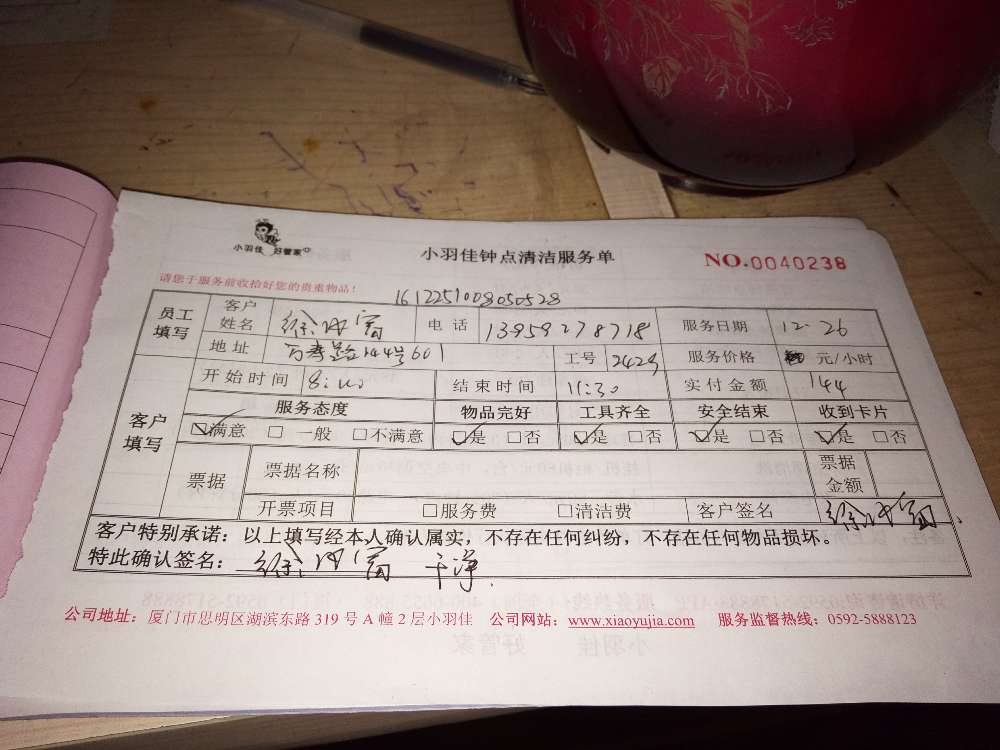 小羽佳 好管家
小羽佳钟点清洁服务单
NO.0040238
请您于服务前收拾好您的贵重物品！
1612251008050528
员工填写 客户姓名 电话 13959278718 服务日期 12.26
地址 万寿路144号601 工号 2429 服务价格 元/小时
客户填写 开始时间 8:00 结束时间 11:30 实付金额 144
服务态度 物品完好 工具齐全 安全结束 收到卡片
满意 一般 不满意 是 否 是 否 是 否 是 否
票据 票据名称 票据金额
开票项目 服务费 清洁费 客户签名
客户特别承诺：以上填写经本人确认属实，不存在任何纠纷，不存在任何物品损坏。
特此确认签名： 干净
公司地址：厦门市思明区湖滨东路 319 号 A 幢 2 层小羽佳 公司网站：www.xiaoyujia.com 服务监督热线：0592-5888123